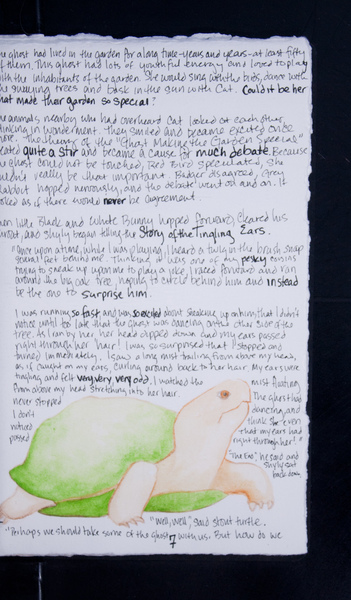 he ghost had lived in the garden for a long time-years and years-at least fifty
of them. This ghost had lots of youthful energy and loved to play
with the inhabitants of the garden. She would sing with the birds, dance with
the swaying trees and bask in the sun with Cat. Could it be her
that made their garden so special?
he animals nearby who had overheard Cat looked at each other,
thinking in wonderment. They smiled and became excited once
more. The theory of the "Ghost Making the Garden Special"
eated quite a stir and became a cause for much debate. Because
he ghost could not be touched, Red Bird speculated, she
ouldn't really be that important. Badger disagreed, Grey
Rabbit hopped nervously, and the debate went on and on. It
oked as if there would never be agreement.
hen little Black and White Bunny hopped forward, cleared his
throat and shyly began telling the Story of the Tingling Ears.
"Once upon a time, while I was playing, I heard a twig in the brush snap
several feet behind me. Thinking it was one of my pesky cousins
trying to sneak up upon me to play a joke, I raced forward and ran
around the big oak tree, hoping to circle behind him and instead
be the one to surprise him.
I was running so fast and was so excited about sneaking up on him that I didn't
notice until too late that the ghost was dancing on the other side of the
tree. As I ran by her, her head dipped down and my ears passed
right through her hair! I was so surprised that I stopped and
turned immediately. I saw a long mist trailing from above my head,
as if caught on my ears, curling around back to her hair. My ears were
tingling and felt very, very, very odd. I watched the mist floating
from above my head stretching into her hair. The ghost had
never stopped dancing, and
I don't think she even
noticed that my ears had
passed right through her!"
"The End", he said and
shyly sat
back down.
"Well, well", said stout turtle.
"Perhaps we should take some of the ghost with us. But how do we
7